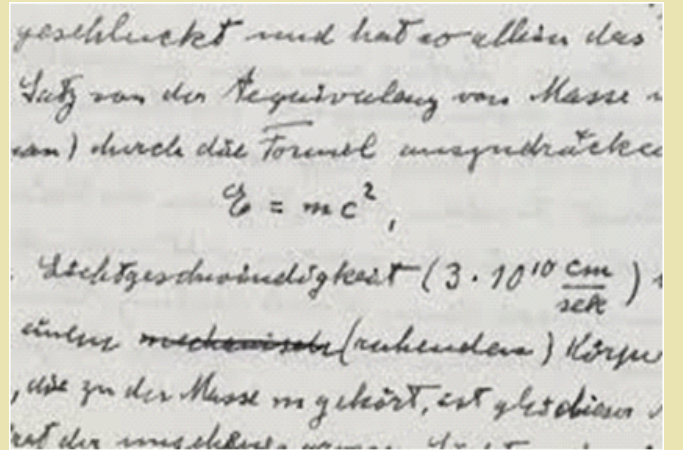 geschluckt und hat so allein das
Satz von der Aequivalenz von Masse
durch die Formel auszudrücken
E = mc²,
Lichtgeschwindigkeit (3 · 10¹⁰ cm/sek)
einem mechanisch (ruhenden) Körper
, die zu der Masse m gehört, ist gleich dieser
der